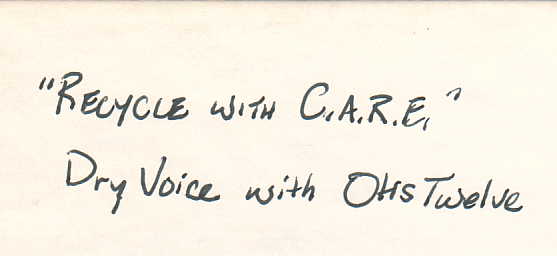 "RECYCLE WITH C.A.R.E."
Dry Voice with Otis Twelve